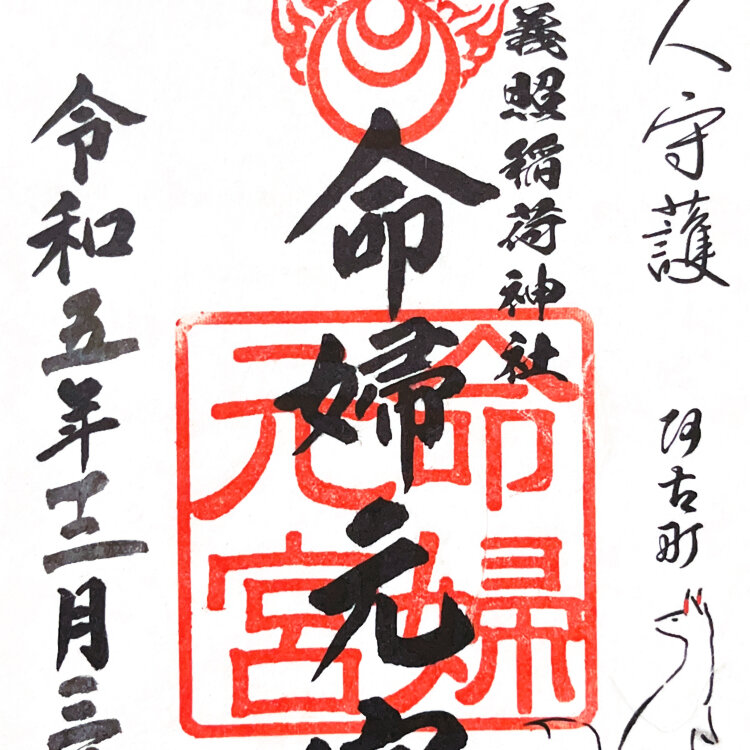 人守護
阿古町
義照稲荷神社
命婦元宮
命婦
元宮
令和五年十二月三